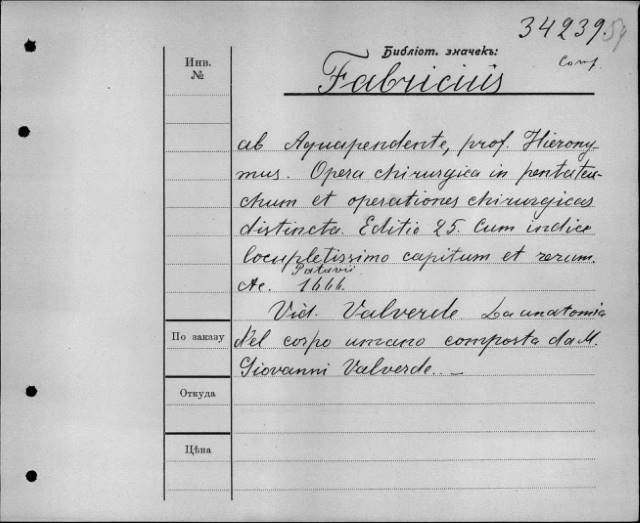 34239.54
Библіот. значекъ:
Conf.
Инв.
№
Fabricius
ab Aquapendente, prof. Hierony-
mus. Opera chirurgica in pentateu-
chum et operationes chirurgicas
distincta. Editio 25. Cum indice
locupletissimo capitum et rerum.
Patavii
Ae. 1666.
Vid. Valverde La anatomia
По заказу
del corpo umano composta da M.
Giovanni Valverde. _
Откуда
Цѣна